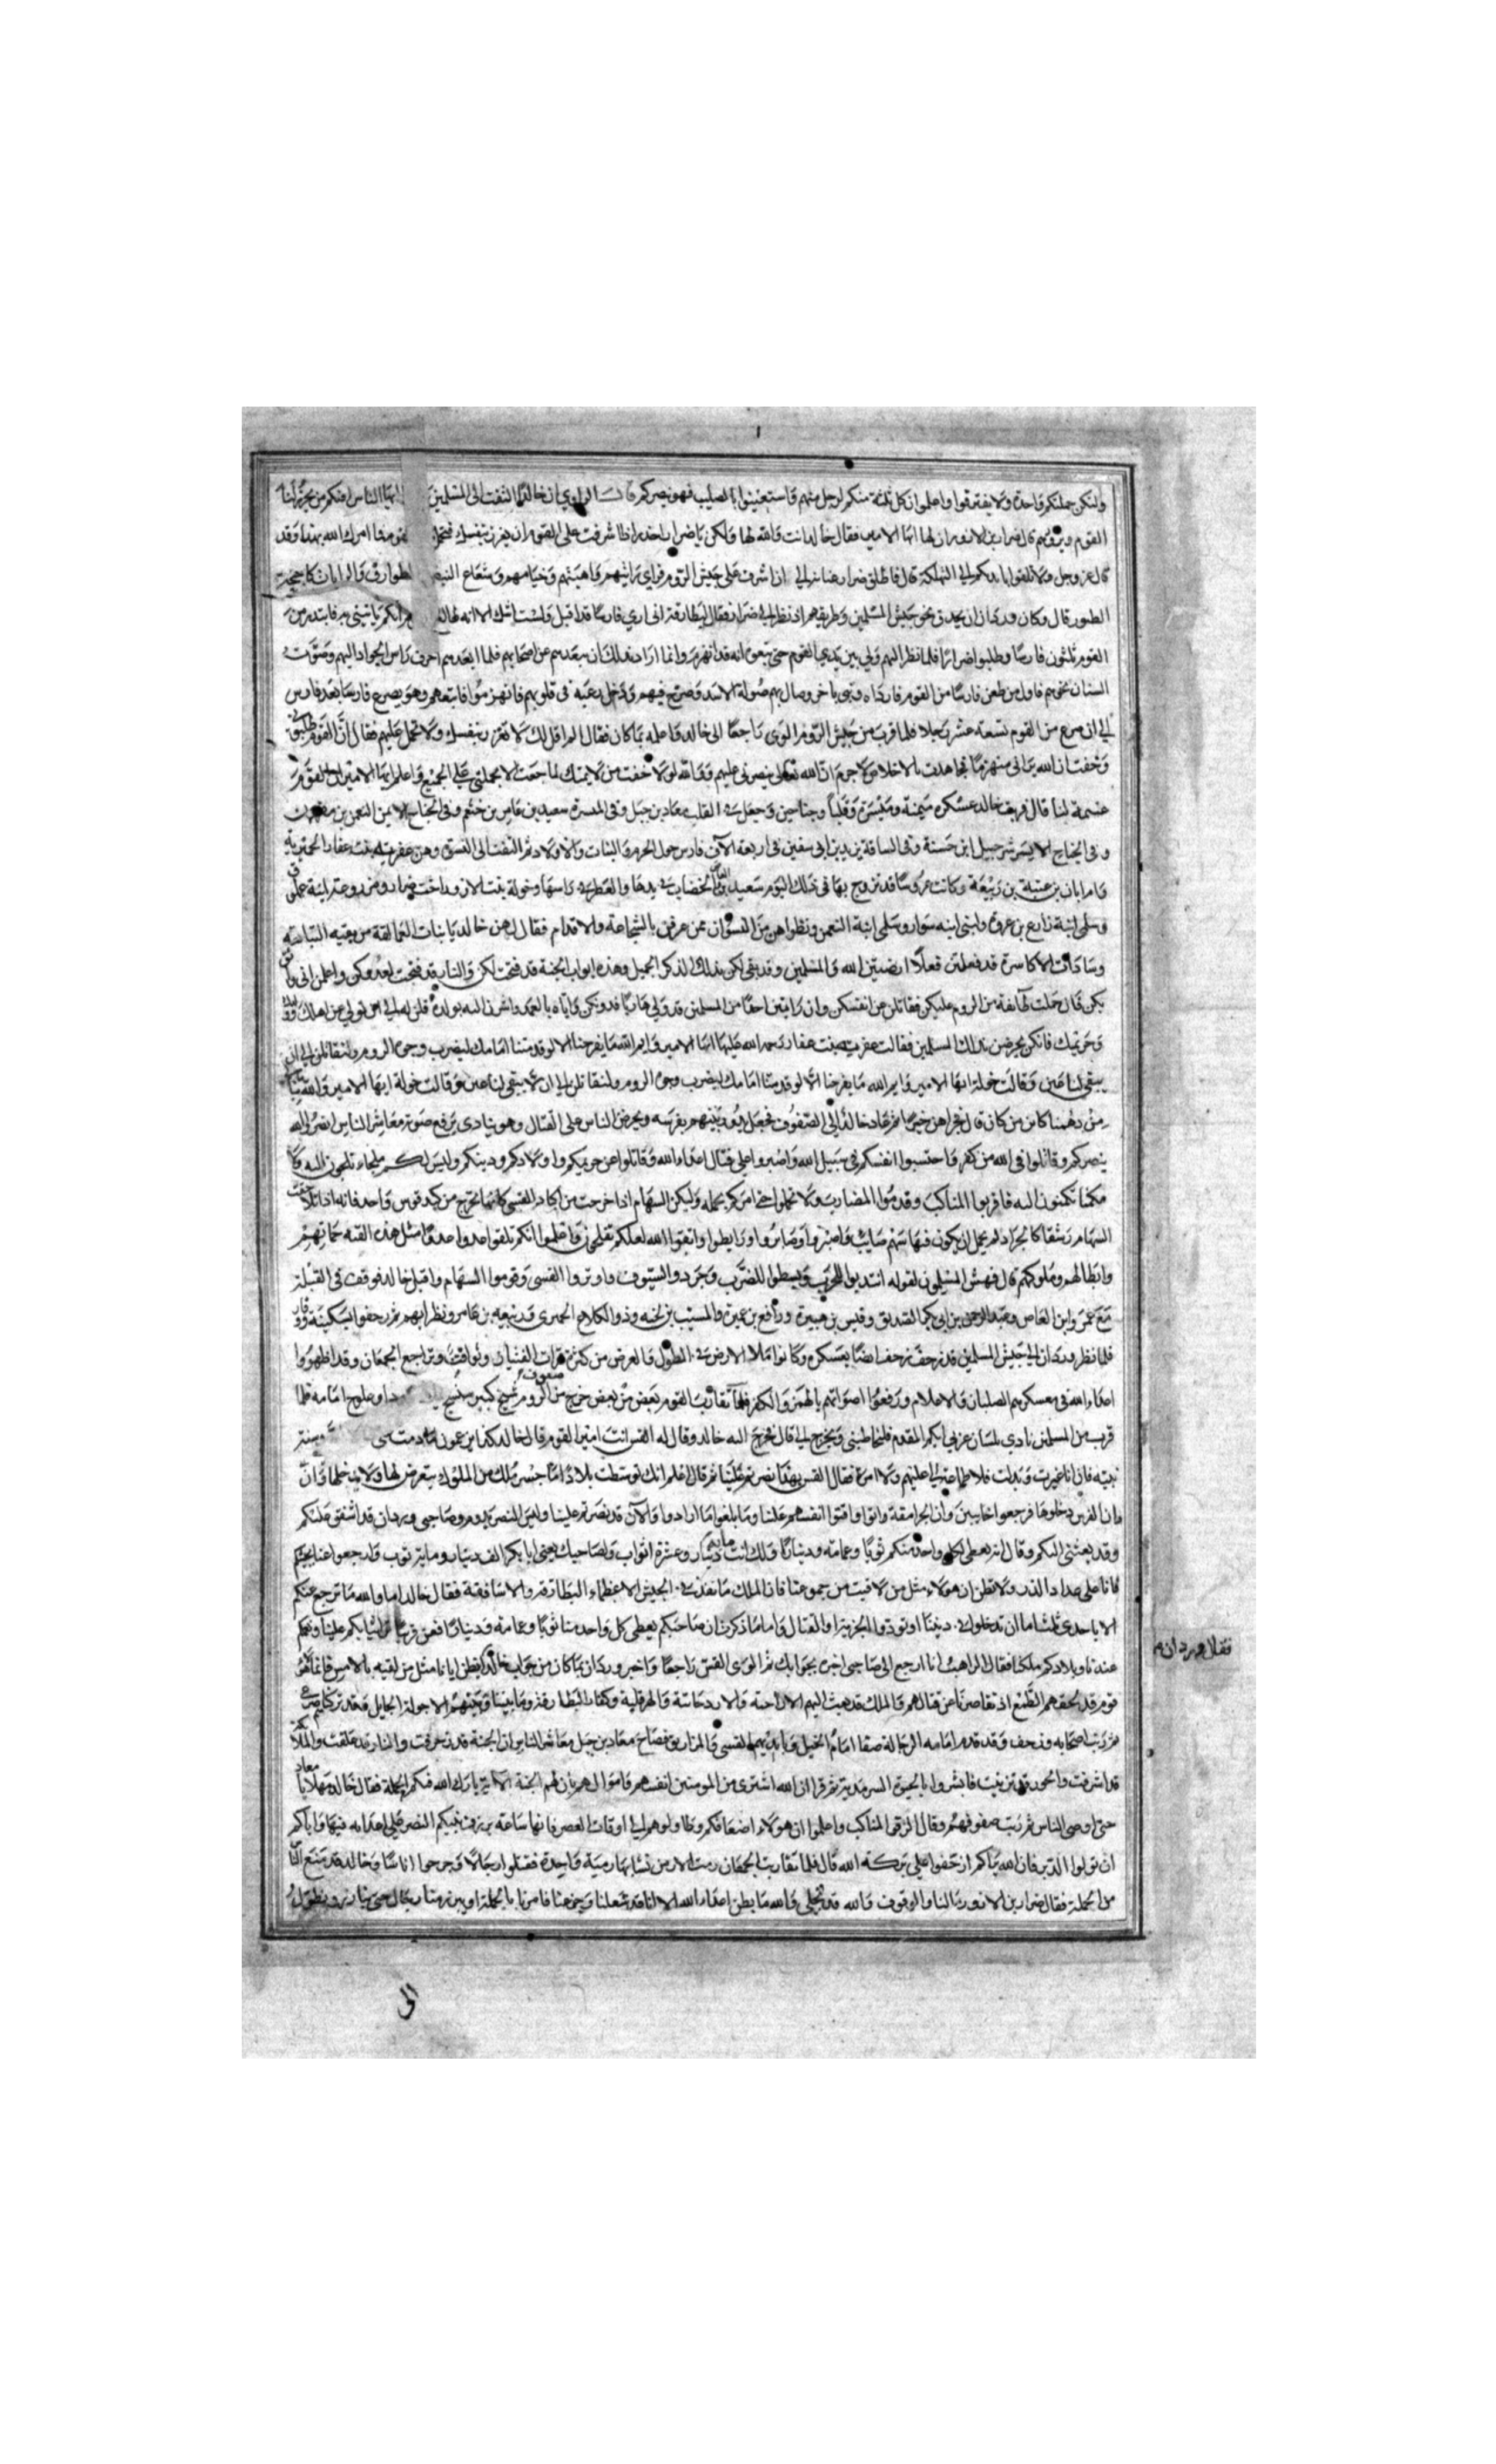 ولتكن حملتكم واحدة ولا يفترقوا واعلموا ان كل ثلثة منكم لرجل منهم واستعينوا بالصليب فهو ينصركم قال الراوي ان خالدا التفت الى المسلمين ايها الناس افيكم من يحزر لنا
القوم ويروهم قال ضرار بن الازور ان لها ايها الامير فقال خالد انت والله لها ولكن يا ضرار احذر اذا اشرفت على القوم ان يغرر بنفسك فتحمل امرك الله بهذا وقد
قال عز وجل ولا تلقوا بايديكم الى التهلكة قال فاطلق ضرار عنانه الى ان اشرف على جيش الروم فراي اثاثهم واهبتهم وخيامهم وشعاع البيض الطوارق والرايات كاجنحة
الطيور قال وكان وردان يحدق نحو جيش المسلمين وطريقهم اذ نظر الى ضرار فقال لبطارقته اني اري فارسا قد اقبل ولست اشك الا انه ايكم ياتيني به فابتدر من
القوم ثلثون فارسا وطلبوا ضرارا فلما نظر اليهم ولي بين يدي القوم حتى تبعوه انه قد انهزم وانما اراد بذلك ان يبعدهم عن اصحابهم فلما ابعدهم احرف راس الجواد اليهم وصوب
السنان نحوهم فاول من طعن فارسا من القوم فارداه وثني باخر وصال بهم صولة الاسد وصرخ فيهم ودخل رعبه في قلوبهم فانهزموا فاتبعهم وهو يصرع فارسا بعد فارس
الى ان صرع من القوم تسعة عشر رجلا فلما قرب من جيش الروم الوى راجعا الى خالد فاعلمه بما كان فقال الم اقل لك لا تغرر بنفسك ولا تحمل عليهم فقال ان القوم طلبوني
وخفت ان الله يراني منهزما فجاهدت بالاخلاص لا جرم ان الله تعالى نصرني عليهم ووالله لولا خفت من لايمتك لما رجعت الا بحملتي على الجميع واعلم ايها الامير ان القوم
غنيمة لنا قال فريف خالد عسكره ميمنة وميسرة وقلبا وجناحين وجعل في القلب معاد بن جبل وفي الميسرة سعيد بن عامر بن خثم وفي الجناح الايمن النعمن بن مقرن
وفي الجناح الايسر شرحبيل ابن حسنة وفي الساقة يزيد بن ابي سفين في اربعة الاف فارس حول الحريم والبنات والاولاد ثم التفت الى النسوة وهن عفيرة بنت عفار الحميرية
وام ابان بن عتبة بن ربيعة وكانت عروسا قد تزوج بها في ذلك اليوم سعيد الخضاب في يدها والعطر في راسها وخولة بنت الازور اخت ضرار
وسلمى ابنة زارع بن عروة ولبنى ابنه سوار وسلمى ابنة النعمن ونظراهن من النسوان ممن عرفن بالشجاعة والاقدام فقال لهن خالد يا بنات العمالقة من بقيه التبابعة
وسادات الاكاسرة قد فعلتن فعلا ارضيتن الله والمسلمين وقد بقي لكن بذلك الذكر الجميل وهذه ابواب الجنة قد فتحت لكن والنار قد فتحت لعدوكن واعلمن اني واثق
بكن فان حملت طايفة من الروم عليكن فقاتلن عن انفسكن وان رايتن احدا من المسلمين قد ولي هاربا فدونكن واياه بالعمد واشرن اليه بولده وقلن له الى اين تولي عن اهلك وولدك
وحريمك فانكن يحرضن بذلك المسلمين فقالت عفيرة بنت عفار رحمه الله عليها ايها الامير وايم الله ما يفرحنا الا لو قدمتنا امامك لنضرب وجوه الروم ولنقاتلن الى ان
يبقى لنا عين وقالت خولة ايها الامير وايم الله ما يفرحنا الا لو قدمتنا امامك لنضرب وجوه الروم ولنقاتلن الى ان لا يبقى لنا عين وقالت خولة ايها الامير والله
من دهمنا كاين من كان قال فجزاهن خيرا ثم عاد خالد الى الصفوف فجعل يدور بينهم بفرسه ويحرض الناس على القتال وهو ينادي برفع صوته معاشر الناس انصروا الله
ينصركم وقاتلوا في الله من كفر واحتسبوا انفسكم في سبيل الله واصبروا على قتال اعداء الله وقاتلوا عن حريمكم واولادكم ودينكم وليس لكم ملجاء تلجون اليه ولا
مكمنا تكمنون اليه فاقرنوا المناكب وقدموا المضارب ولا تحملوا حتى امركم بحمله وليكن السهام اذا خرجت من اكباد القسي كانها تخرج من كبد قوس واحد فانه اذا تلاصقت
السهام رشقا كالجراد لم يخل ان يكون فيها سهم صايب واصبروا وصابروا ورابطوا واتقوا الله لعلكم تفلحون واعلموا انكم تلقوا عدوا مثل هذه الفئه حماتهم
وابطالهم وملوكهم قال فهش المسلمون لقوله انتدبوا للحرب وبسطوا للضرب وجردوا السيوف واوتروا القسى وقوموا السهام واقبل خالد فوقف في القبلة
مع عمرو ابن العاص وعبد الرحمن بن ابي بكر الصديق وقيس بن هبيرة ورافع بن عميرة والمسيب بن نجبه وذو الكلاع الحميري وربيعه بن عامر ونظرايهم ثم زحفوا بسكينة ووقار
فلما نظر وردان الى جيش المسلمين قد زحف زحف ايضا بعسكره وكانوا ملاء الارض في الطول والعرض من كثرتهم وتراجع الجمعان وقد اظهروا
اعداء الله في معسكرهم الصلبان والاعلام ورفعوا اصواتهم بالهمز والكفر فلما تقارب القوم بعض من بعض خرج من الروم شيخ كبير وعلوج امامه فلما
قرب من المسلمين نادي بلسان عربي ايكم المقدم فليخاطبني ويخرج الى قال فخرج اليه خالد وقال له القس انت امير القوم قال خالد كذا يزعمون ما دمت وسنة
نبيه فان انا غيرت وبدلت فلا طاعة لي عليهم ولا امرة فقال القس بهذا نصرتم علينا ثم قال اعلم انك توسطت بلادا ما جسر ملك من الملوك يتعرض لها ولا يدخلها وان
وان الفرس دخلوها فرجعوا خايبين وان الجرامقة واتوا واقتوا انفسهم علينا وما بلغوا ما ارادوا والان قد نصرتم علينا وليس النصر يدوم وصاحبي وردان قد اشفق عليكم
وقد بعثني اليكم وقال انه يعطى لكل واحد منكم ثوبا وعمامه ودينارا ولك انت ماية دينار وعشرة اثواب ولصاحبك يعني ابا بكر الف دينار وماية ثوب وارجعوا عنا بجيشكم
فانا على عداد الذر ولا تظن ان هولاء مثل من لاقيت من جموعنا فان الملك ما نفذ في الجيش الا عظماء البطارقة والاساقفة فقال خالد اما والله ما نرجع عنكم
الا باحدى ثلث اما ان تدخلوا في ديننا او تودوا الجزية او القتال واما ما ذكرت ان صاحبكم يعطى كل واحد منا ثوبا وعمامة ودينارا فعن قريب ثيابكم علينا وعمايمكم
عندنا وبلادكم ملكنا فقال الراهب انا ارجع الى صاحبي اخبره بجوابك ثم الوى القس راجعا واخبر وردان بما كان من جواب خالد ايظن ايانا مثل من لقيه بالامس فانما هو
قوم قد لحقهم الطمع اذ تقاصرنا عن قتالهم والملك قد بعث اليهم الاراحنة والاردحانية والهرقلية وكفار البطارقة وما بيننا وبينهم الا جولة الجايل فنتركهم صرعى
ثم رتب اصحابه وزحف وقد قدم امامه الرجالة صفا امام الخيل وبايديهم القسي والمزاريق فصاح معاد بن جبل معاشر الناس ان الجنة قد زخرفت والنار قد غلقت والملايكة
قد اشرفت والحور قد تزينت فابشروا بالحيوة السرمدية ثم قرا ان الله اشترى من المومنين انفسهم واموالهم بان لهم الجنة الاية بارك الله فيكم الحملة فقال خالد مهلا يا معاد
حتى اوصى الناس ثم رتب صفوفهم وقال الزقوا المناكب واعلموا ان هولاء اضعافكم وطاولوهم الى اوقات العصر فانها ساعة يرزق نبيكم النصر على اعدايه فيها واياكم
ان تولوا الدبر فان الله يراكم ازحفوا على بركة الله قال فلما تقارب الجمعان رمت الارمن نشابها رمية واحدة فقتلوا رجالا وجرحوا اناسا وخالد قد منع الناس
من الحملة فقال ضرار بن الازور ما لنا والوقوف والله قد تجلى والله ما يظن اعداء الله الا انا قد فشلنا وجزعنا فامرنا بالحملة
فقال وردان
الى